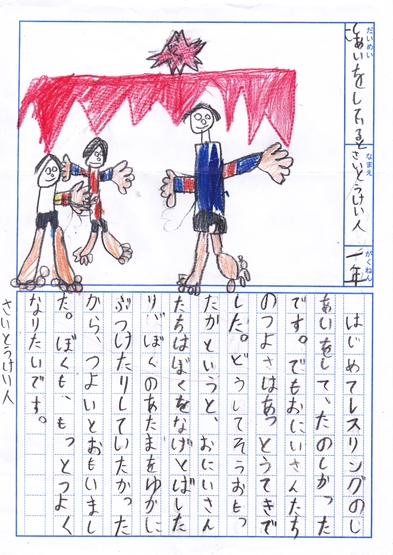 だいめい
しあいをしてると
なまえ
さいとうけい人
がくねん
一年
はじめてレスリングのし
あいをして、たのしかった
です。でもおにいさんたち
のつよさはあっとうてきで
した。どうしてそうおもっ
たかというと、おにいさん
たちはぼくをなげとばした
り、ぼくのあたまをゆかに
ぶつけたりしていたかった
から、つよいとおもいまし
た。ぼくも、もっとつよく
なりたいです。
さいとうけい人